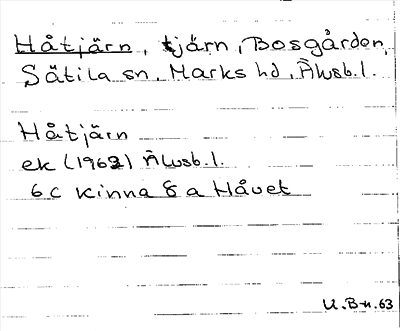 Håtjärn, tjärn, Bosgården,
Sätila sn, Marks hd, Älvsb.l.
Håtjärn
ek (1962) Älvsb.l.
6C Kinna 8 a Håvet
U.B-n.63